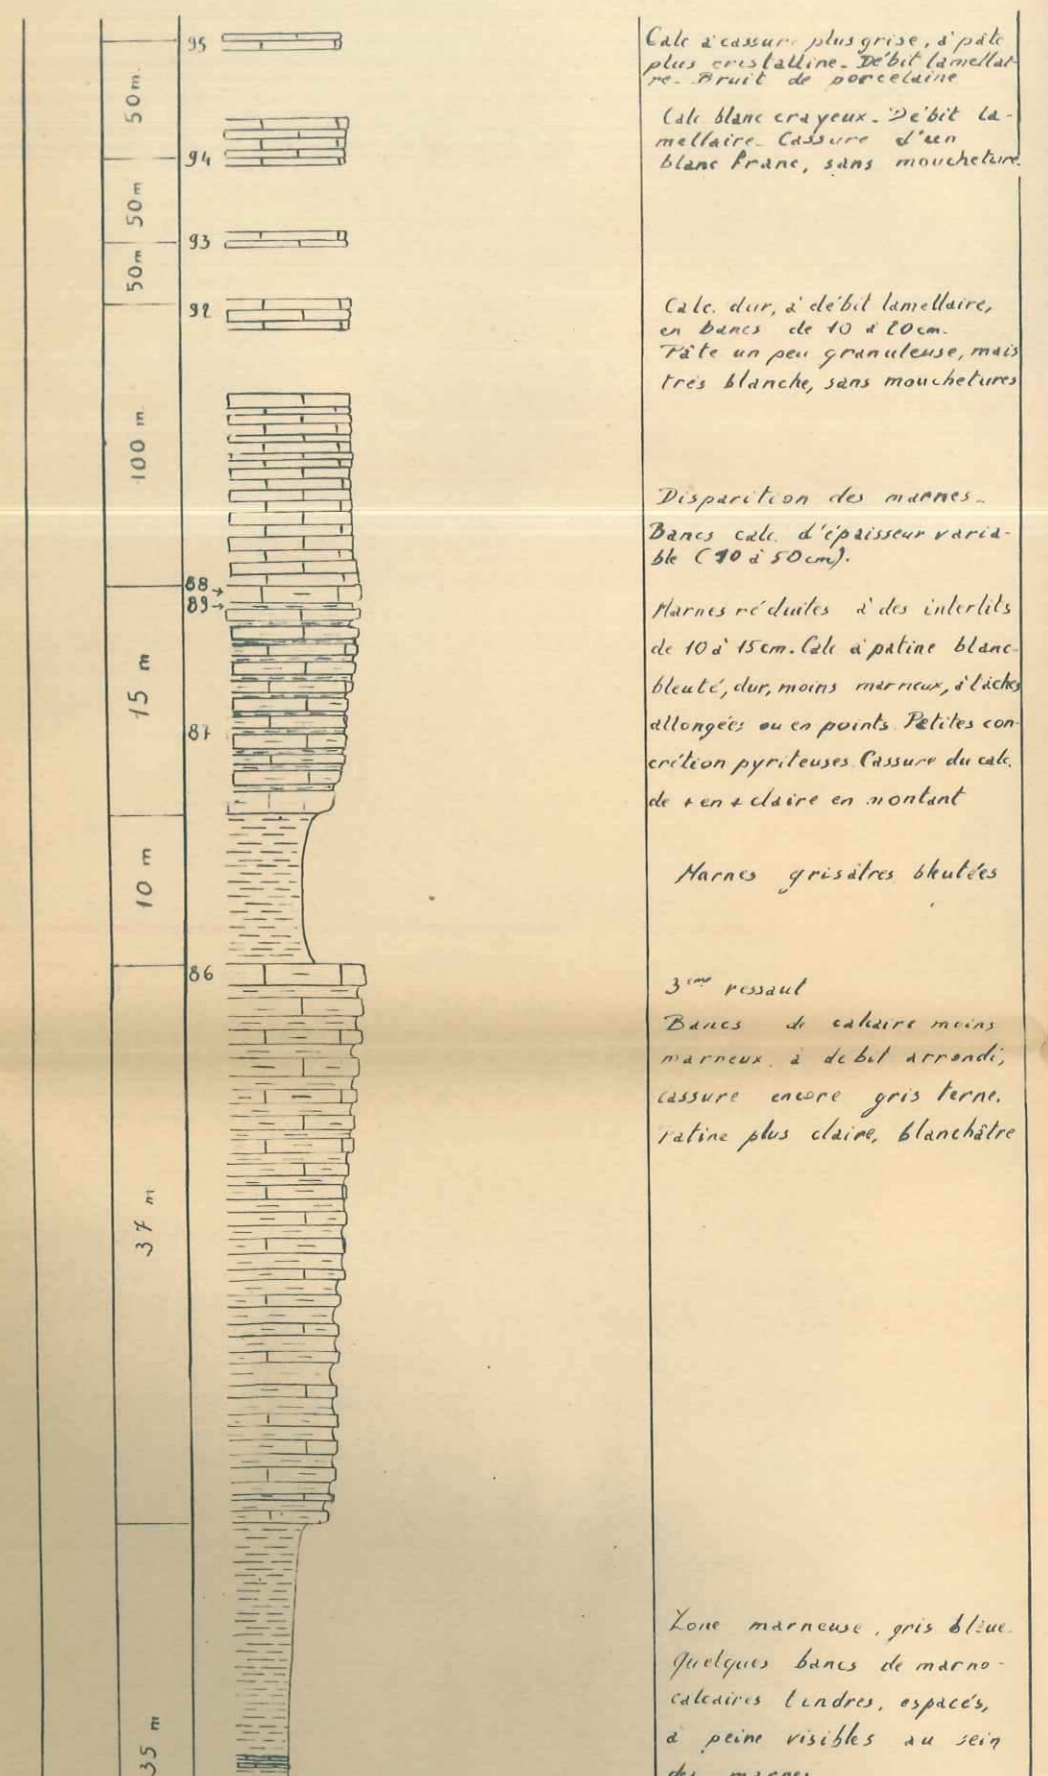 95
50 m.
94
50 m
93
50m
92
100 m.
88→
89→
15 m
87
10 m
86
37 m
35 m
Calc à cassure plus grise, à pâte
plus cristalline. Débit lamellai-
re. Bruit de porcelaine
Calc blanc crayeux. Débit la-
mellaire. Cassure d'un
blanc franc, sans moucheture
Calc. dur, à débit lamellaire,
en bancs de 10 à 20 cm.
Pâte un peu granuleuse, mais
très blanche, sans mouchetures
Disparition des marnes.
Bancs calc. d'épaisseur varia-
ble (10 à 50 cm).
Marnes réduites à des interlits
de 10 à 15 cm. Calc à patine blanc-
bleuté, dur, moins marneux, à tâches
allongées ou en points. Petites con-
crétion pyriteuses. Cassure du calc.
de + en + claire en montant
Marnes grisâtres bleutées
3ème ressaut
Bancs de calcaire moins
marneux à débit arrondi,
cassure encore gris terne.
Patine plus claire, blanchâtre
Zone marneuse, gris bleue.
Quelques bancs de marno-
calcaires tendres, espacés,
à peine visibles au sein
des marnes